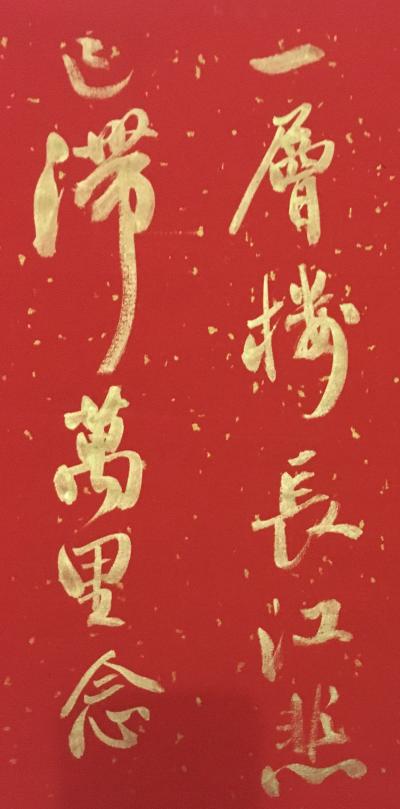 一層樓長江悲
已滯萬里念